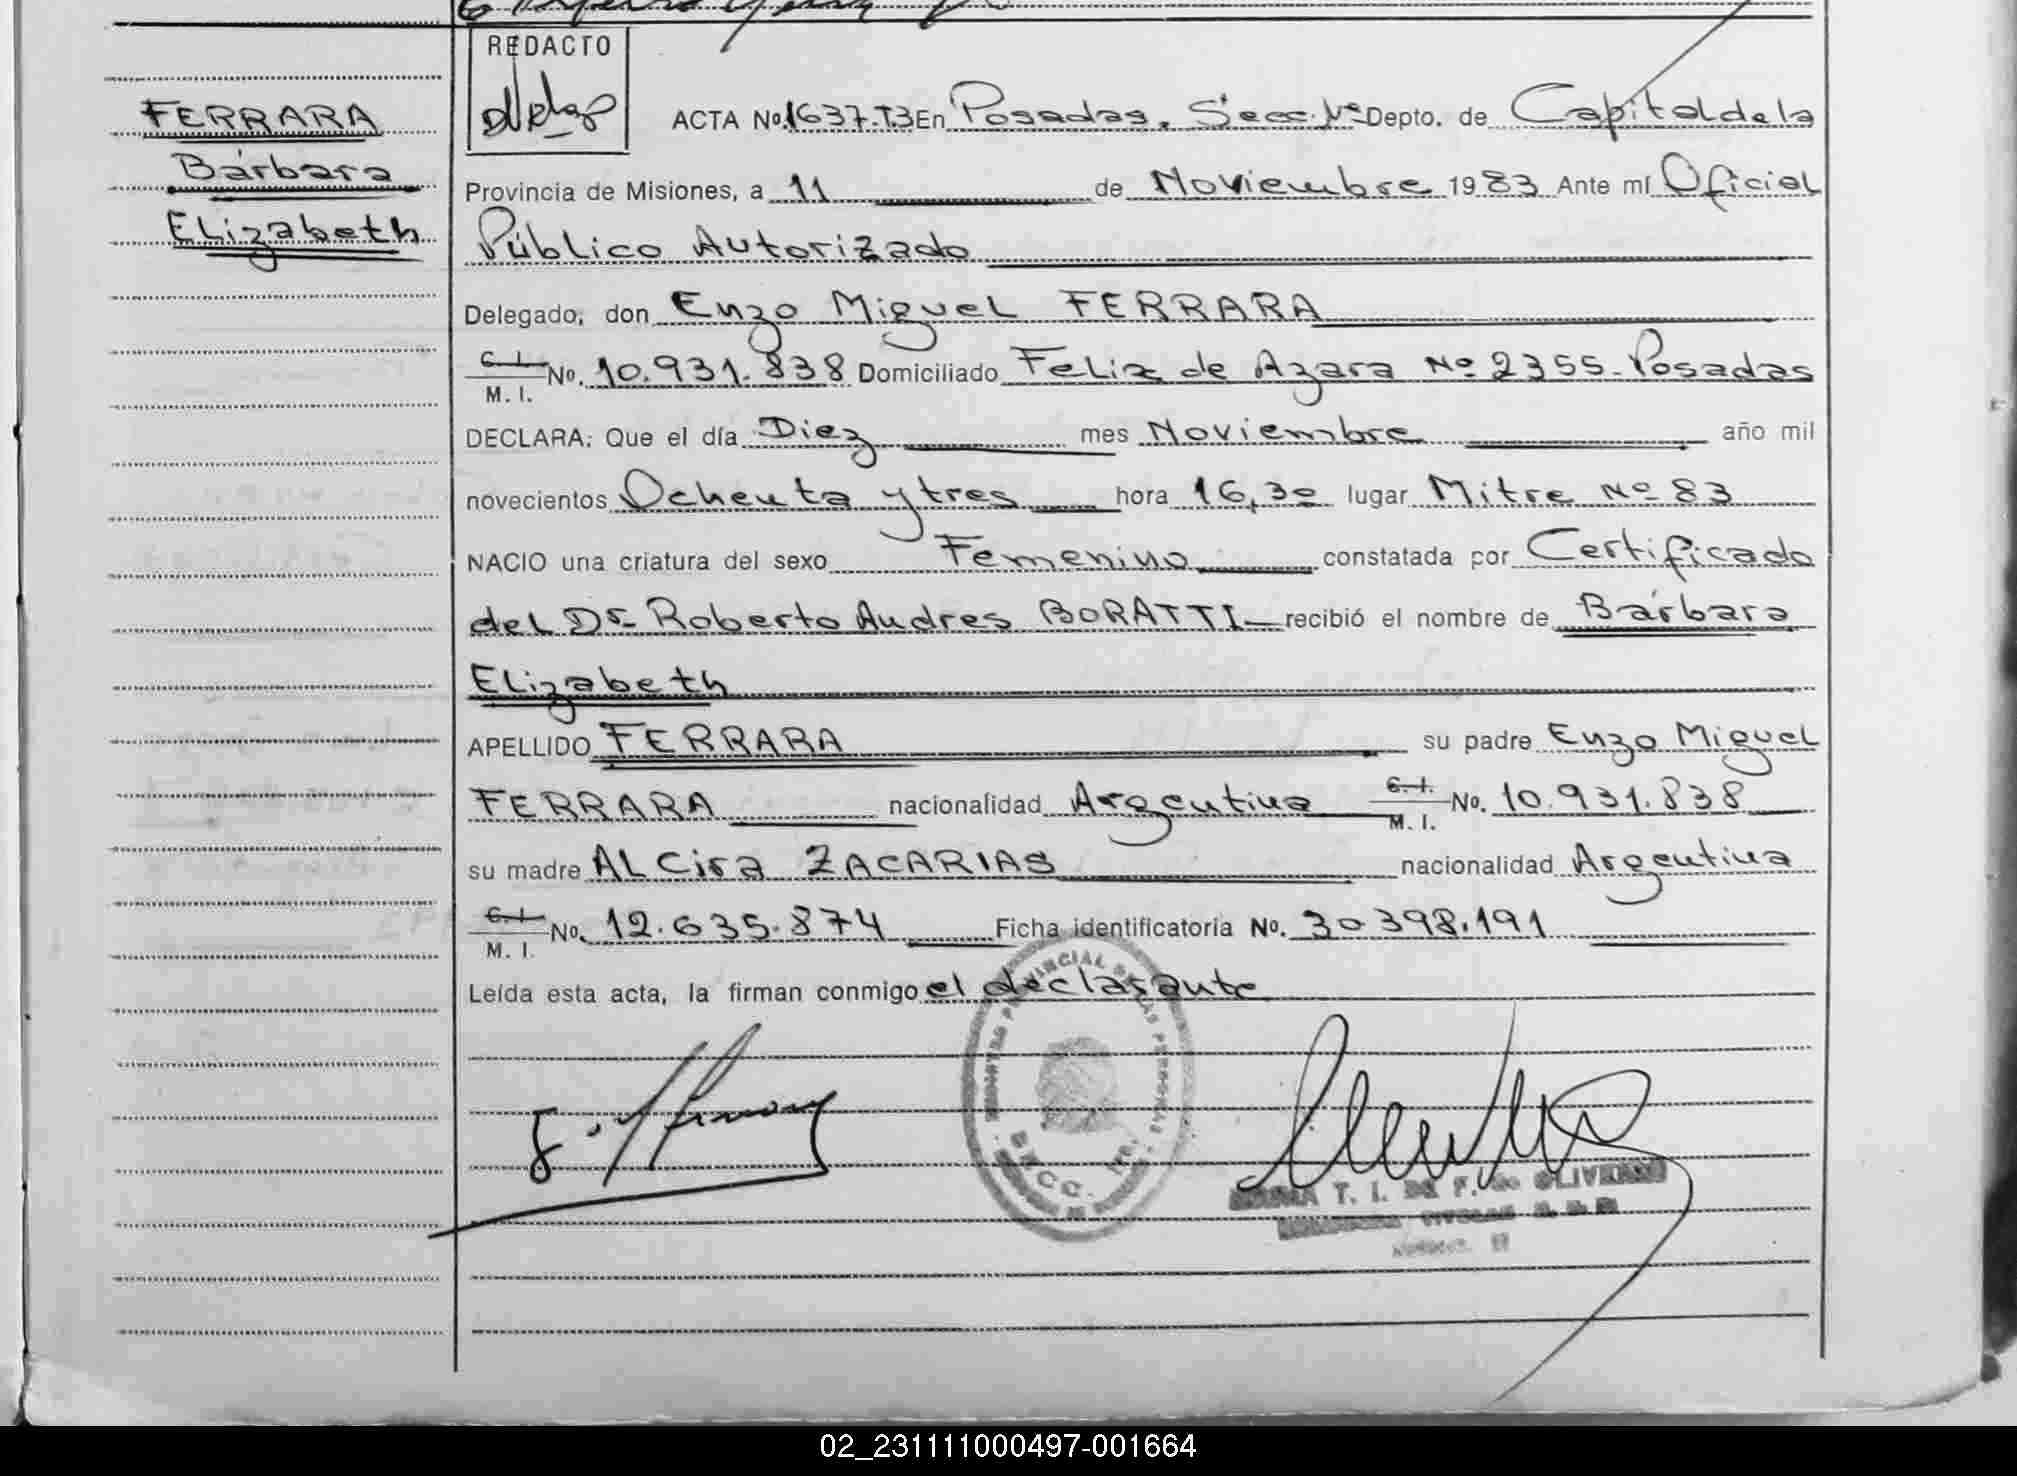 REDACTO
FERRARA
Bárbara
Elizabeth
ACTA No. 1637.T3 En Posadas, Secc. 1ª Depto. de Capital de la
Provincia de Misiones, a 11 de Noviembre 1983 Ante mí Oficial
Público Autorizado
Delegado, don Enzo Miguel FERRARA
C. I. / M. I. No. 10.931.838 Domiciliado Felix de Azara Nº 2355. Posadas
DECLARA: Que el día Diez mes Noviembre año mil
novecientos Ochenta y tres hora 16,30 lugar Mitre Nº 83
NACIO una criatura del sexo Femenino constatada por Certificado
del Dr. Roberto Andres BORATTI recibió el nombre de Bárbara
Elizabeth
APELLIDO FERRARA su padre Enzo Miguel
FERRARA nacionalidad Argentina C. I. / M. I. No. 10.931.838
su madre ALCira ZACARIAS nacionalidad Argentina
C. I. / M. I. No. 12.635.874 Ficha identificatoria No. 30398.191
Leída esta acta, la firman conmigo el declarante
PROVINCIAL DE LAS PERSONAS
SECC. 1ra.
T. I. DE F. de OLIVEIRA
02_231111000497-001664